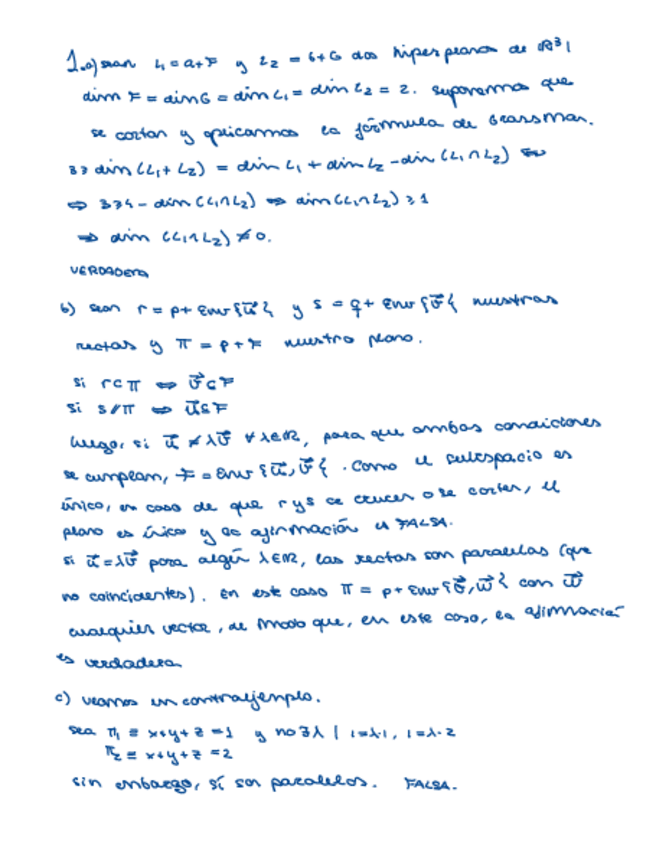 1.a) sean L₁ = a+F y L₂ = b+G dos hiperplanos de ℝ³,
dim F = dim G = dim L₁ = dim L₂ = 2. Suponemos que
se cortan y aplicamos la fórmula de Grassman.
3 ≥ dim (L₁+L₂) = dim L₁ + dim L₂ - dim (L₁∩L₂) ⇔
⇔ 3 ≥ 4 - dim (L₁∩L₂) ⇒ dim (L₁∩L₂) ≥ 1
⇒ dim (L₁∩L₂) ≠ 0.
VERDADERO
b) sean r = p + Env{u⃗} y s = q + Env{v⃗} nuestras
rectas y π = p + F nuestro plano.
si r⊂π ⇔ v⃗⊂F
si s//π ⇔ u⃗⊆F
luego, si u⃗ ≠ λv⃗ ∀λ∈ℝ, para que ambas condiciones
se cumplan, F = Env{u⃗,v⃗}. Como el subespacio es
único, en caso de que r y s se crucen o se corten, el
plano es único y la afirmación es FALSA.
si u⃗=λv⃗ para algún λ∈ℝ, las rectas son paralelas (que
no coincidentes). En este caso π = p + Env{v⃗,w⃗} con w⃗
cualquier vector, de modo que, en este caso, la afirmación
es verdadera
c) veamos un contraejemplo.
sea π₁ ≡ x+y+z=1 y no ∃λ | 1=λ·1, 1=λ·2
π₂ ≡ x+y+z=2
sin embargo, sí son paralelos. FALSA.